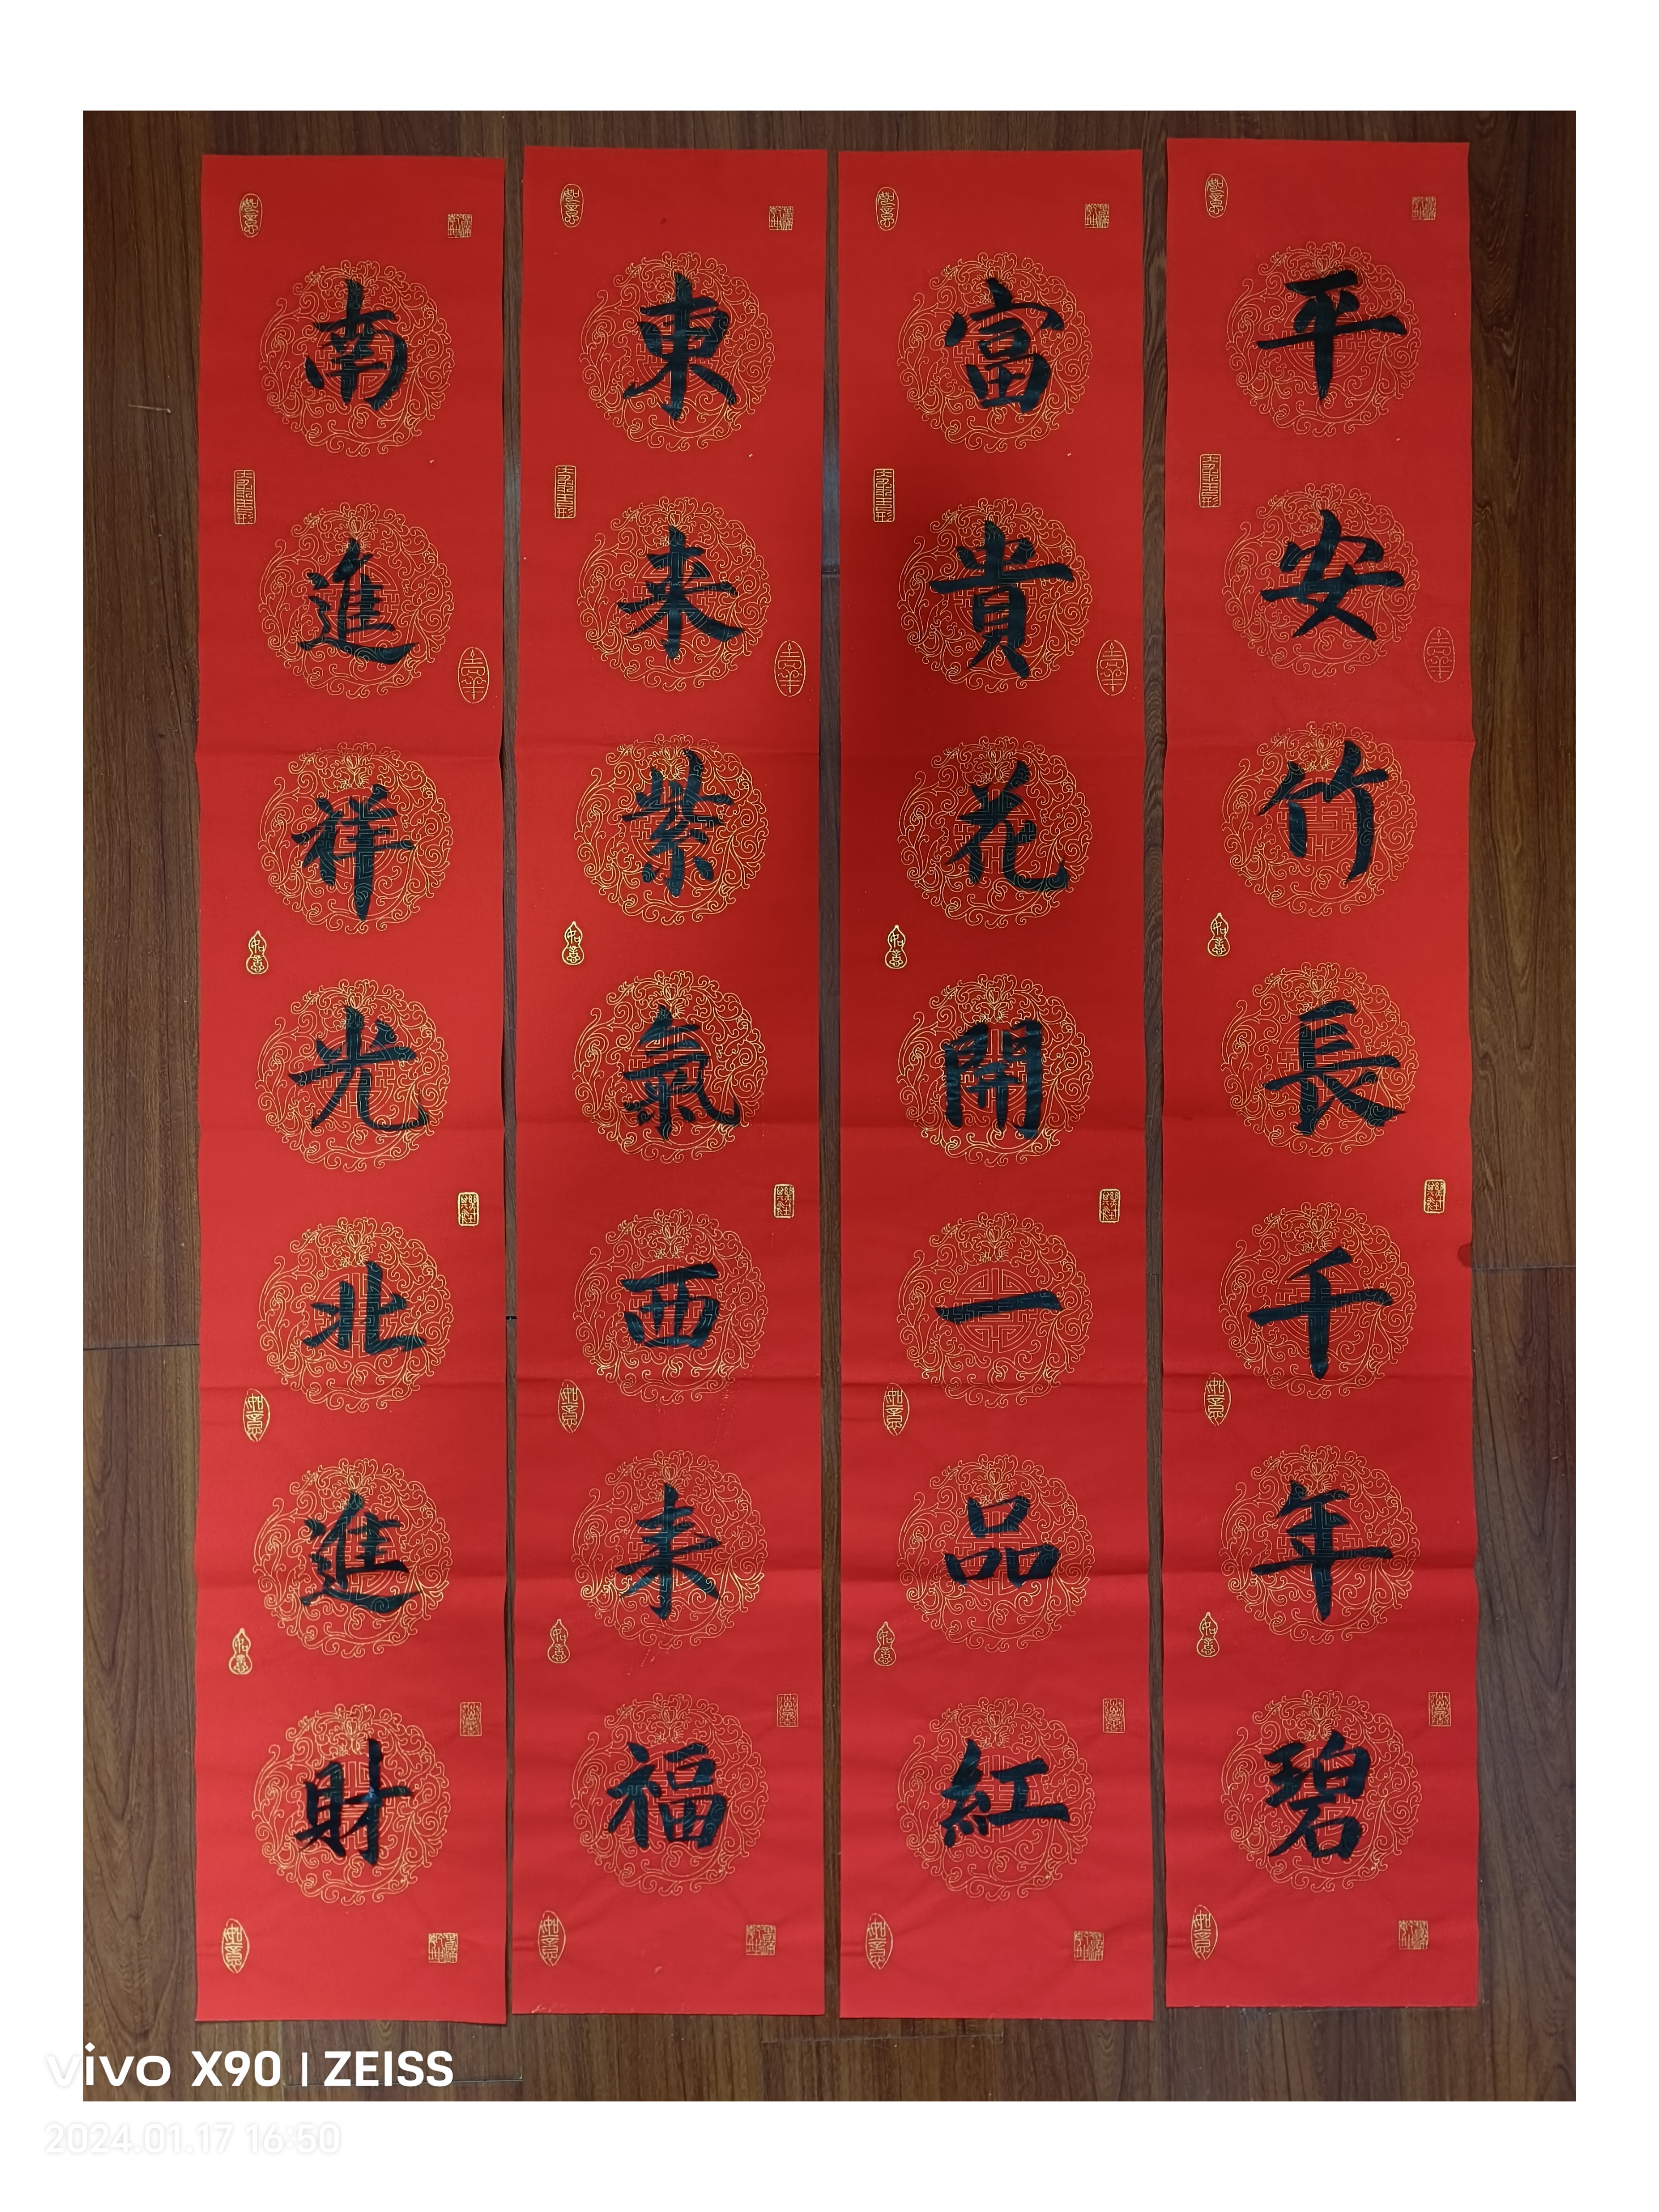 平安竹長千年碧
富貴花開一品紅
東来紫氣西来福
南進祥光北進財
vivo X90 | ZEISS
2024.01.17 16:50